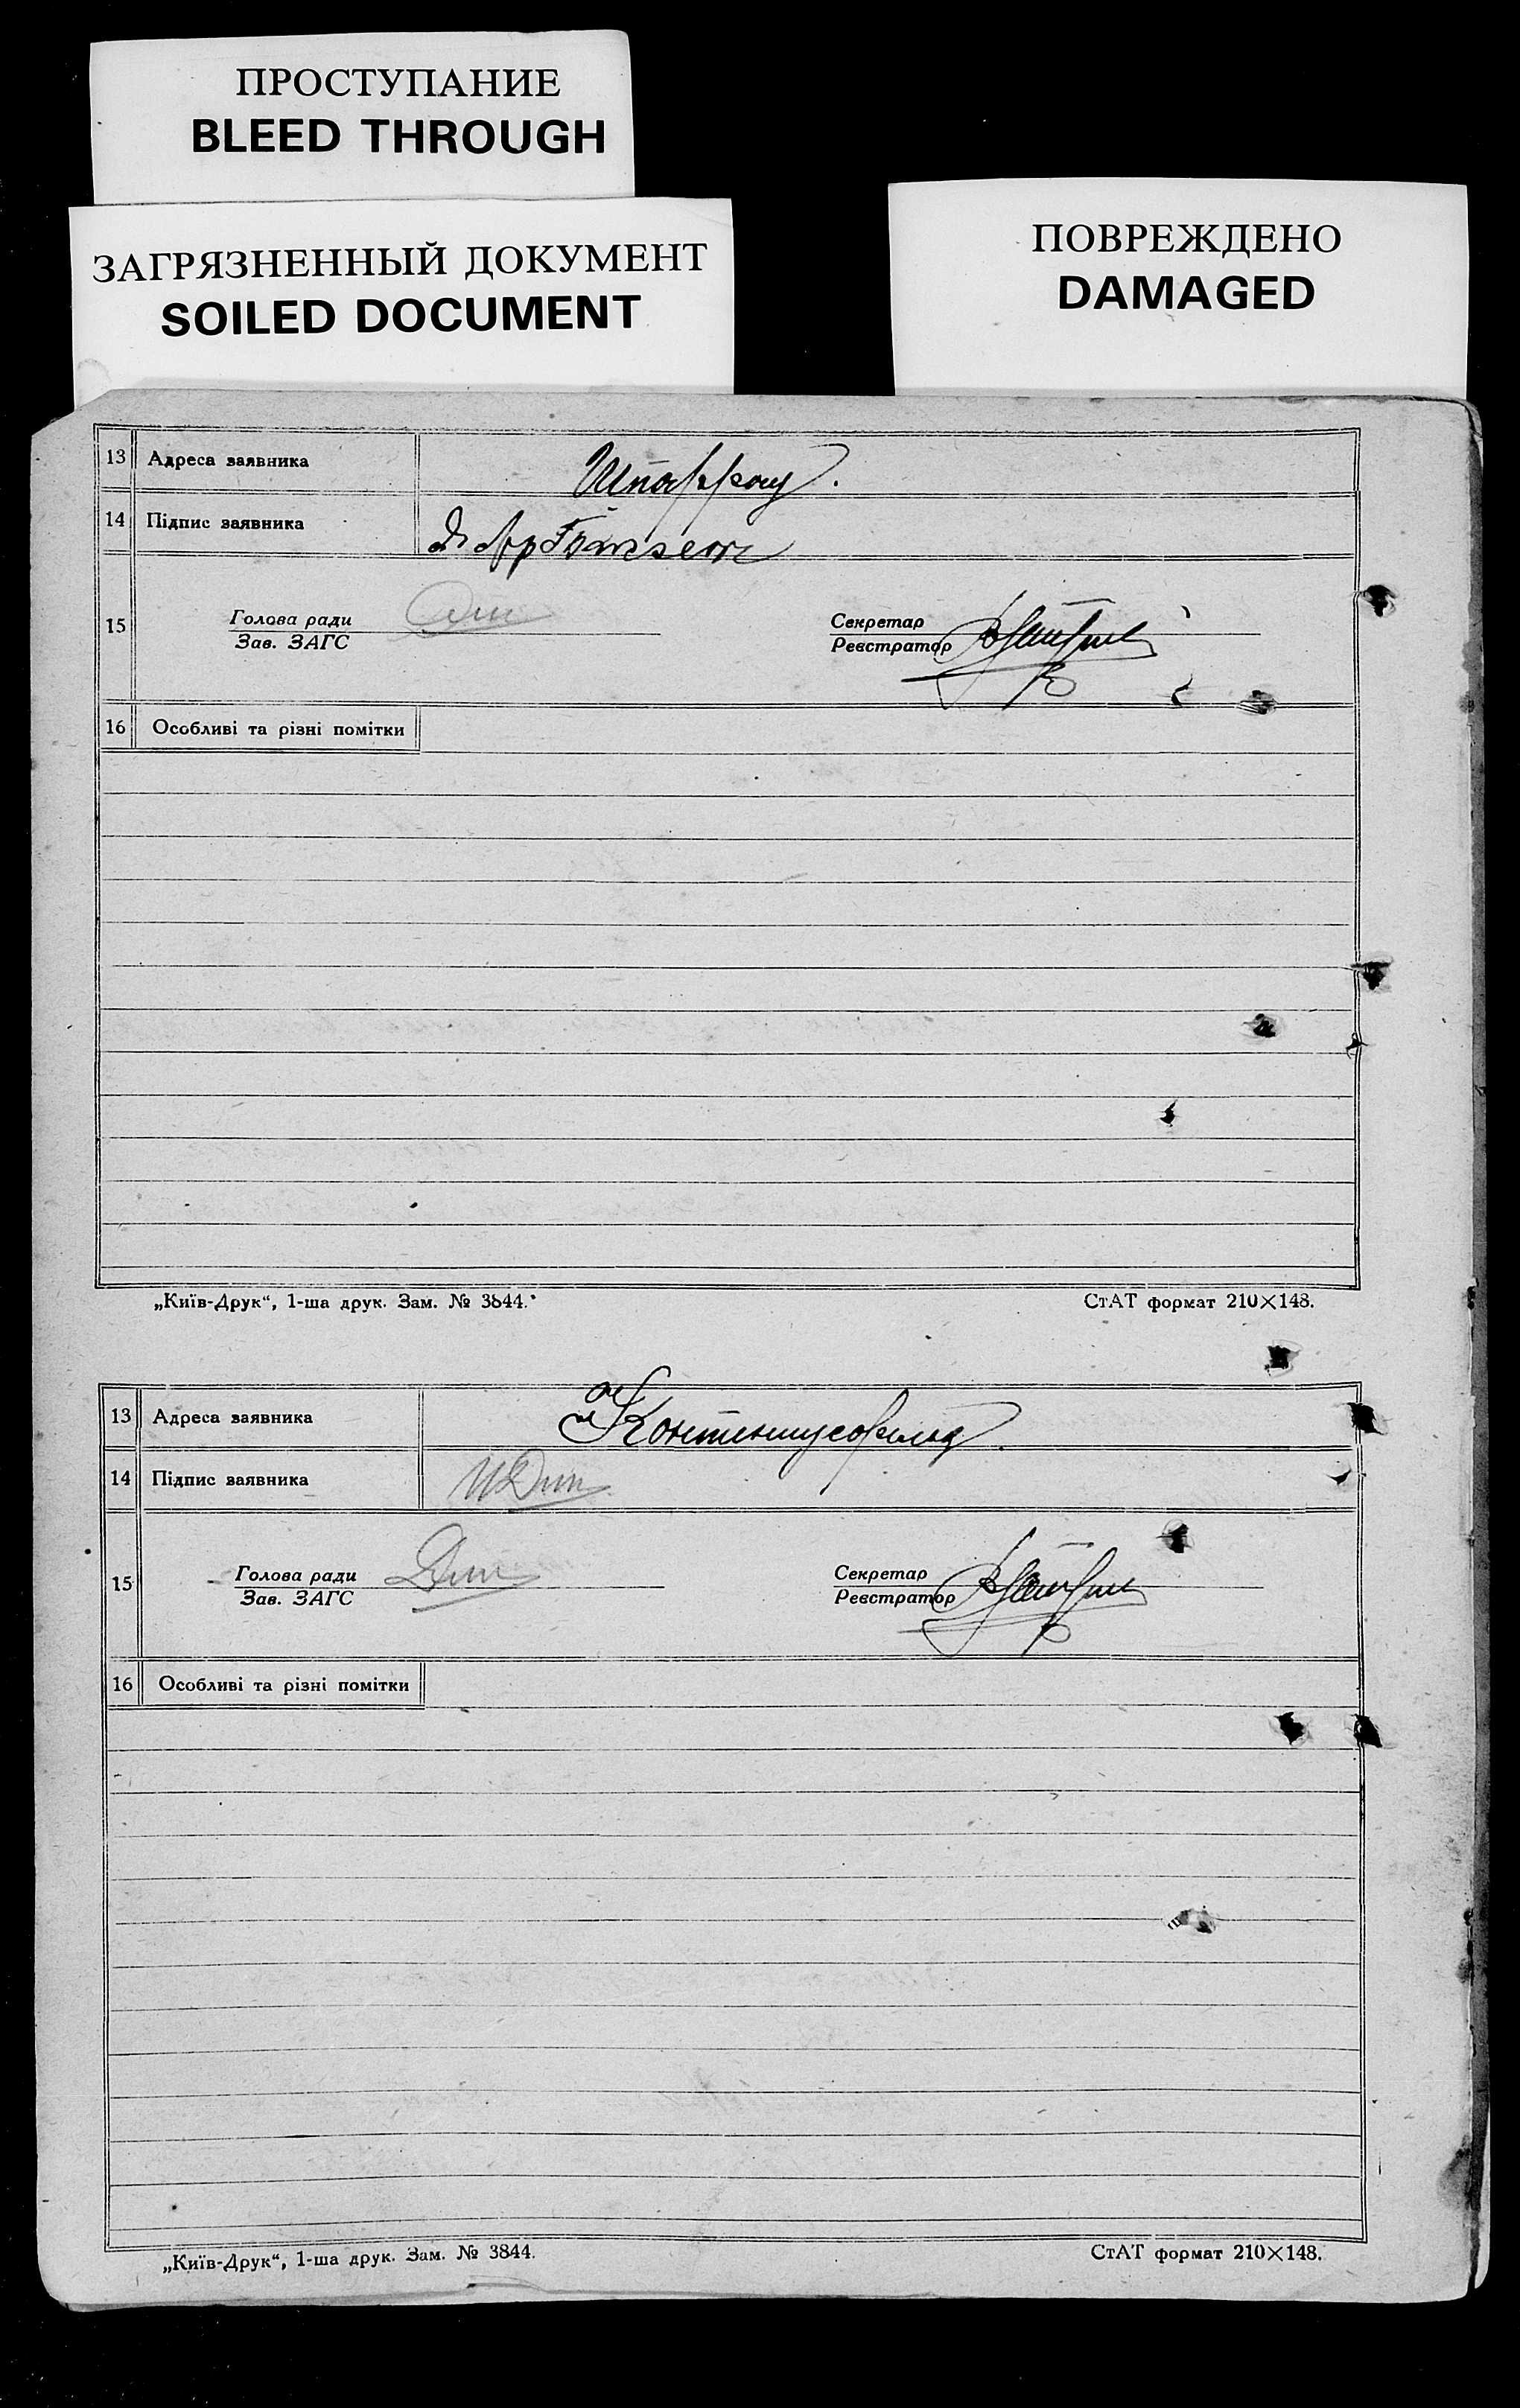 ПРОСТУПАНИЕ
BLEED THROUGH
ЗАГРЯЗНЕННЫЙ ДОКУМЕНТ
SOILED DOCUMENT
ПОВРЕЖДЕНО
DAMAGED
13 Адреса заявника Шпаррау.
14 Підпис заявника
15 Голова ради Секретар
Зав. ЗАГС Реєстратор
16 Особливі та різні помітки
„Київ-Друк“, 1-ша друк. Зам. № 3844. СтАТ формат 210×148.
13 Адреса заявника
14 Підпис заявника
15 Голова ради Секретар
Зав. ЗАГС Реєстратор
16 Особливі та різні помітки
„Київ-Друк“, 1-ша друк. Зам. № 3844. СтАТ формат 210×148.